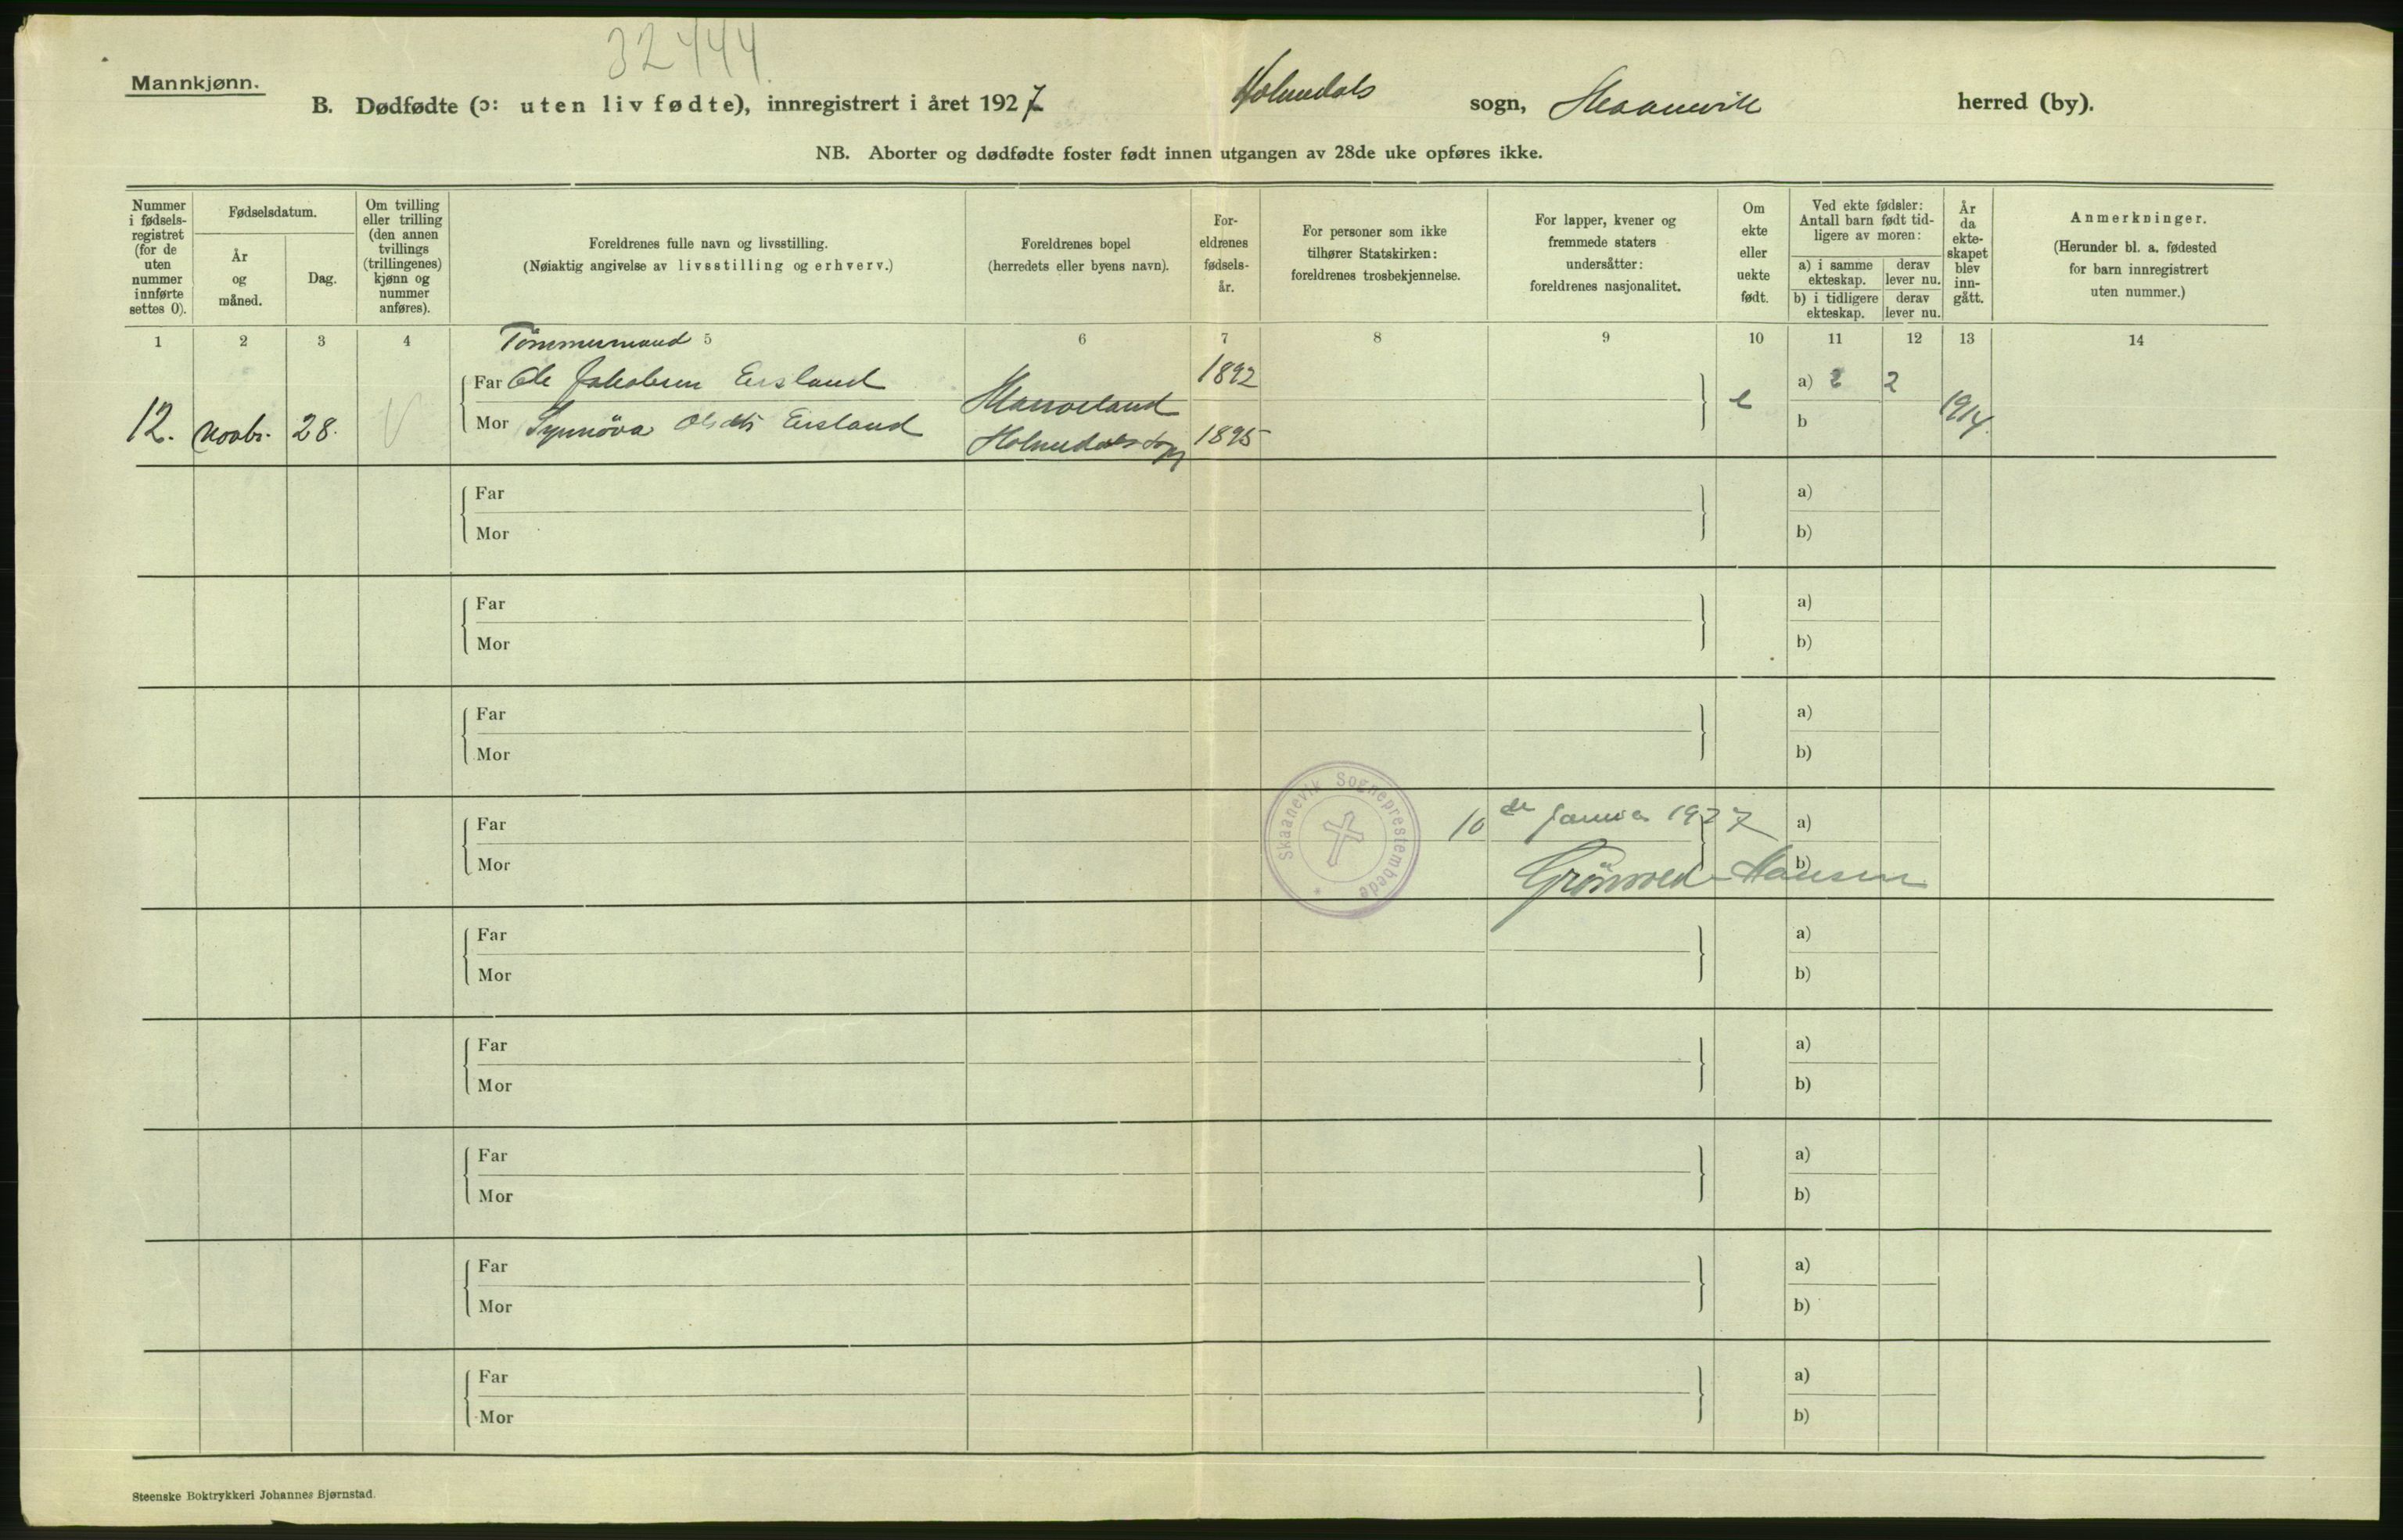 32444
Mannkjønn.
B. Dødfødte (ɔ: uten liv fødte), innregistrert i året 1927 Holmedals sogn, Skaanevik herred (by).
NB. Aborter og dødfødte foster født innen utgangen av 28de uke opføres ikke.
Nummer
i fødsels-
registret
(for de
uten
nummer
innførte
settes 0).
Fødselsdatum.
År
og
måned.
Dag.
Om tvilling
eller trilling
(den annen
tvillings
(trillingenes)
kjønn og
nummer
anføres).
Foreldrenes fulle navn og livsstilling.
(Nøiaktig angivelse av livsstilling og erhverv.)
Foreldrenes bopel
(herredets eller byens navn).
For-
eldrenes
fødsels-
år.
For personer som ikke
tilhører Statskirken:
foreldrenes trosbekjennelse.
For lapper, kvener og
fremmede staters
undersåtter:
foreldrenes nasjonalitet.
Om
ekte
eller
uekte
født.
Ved ekte fødsler:
Antall barn født tid-
ligere av moren:
a) i samme
ekteskap.
derav
lever nu.
b) i tidligere
ekteskap.
derav
lever nu.
År
da
ekte-
skapet
blev
inn-
gått.
Anmerkninger.
(Herunder bl. a. fødested
for barn innregistrert
uten nummer.)
1 2 3 4 5 6 7 8 9 10 11 12 13 14
Tömmermand
Far Ole Jakobsen Eisland 1892 a) 2 2
12. Novbr. 28. Mor Synnöva Olsdtr Eisland Holmedals sogn 1895 e b 1914.
Far a)
Mor b)
Far a)
Mor b)
Far a)
Mor b)
Skaanevik Sogneprestembede
Far 10 de Januar 1927 a)
Mor Grönvold-Hansen b)
Far a)
Mor b)
Far a)
Mor b)
Far a)
Mor b)
Far a)
Mor b)
Far a)
Mor b)
Steenske Boktrykkeri Johannes Bjørnstad.